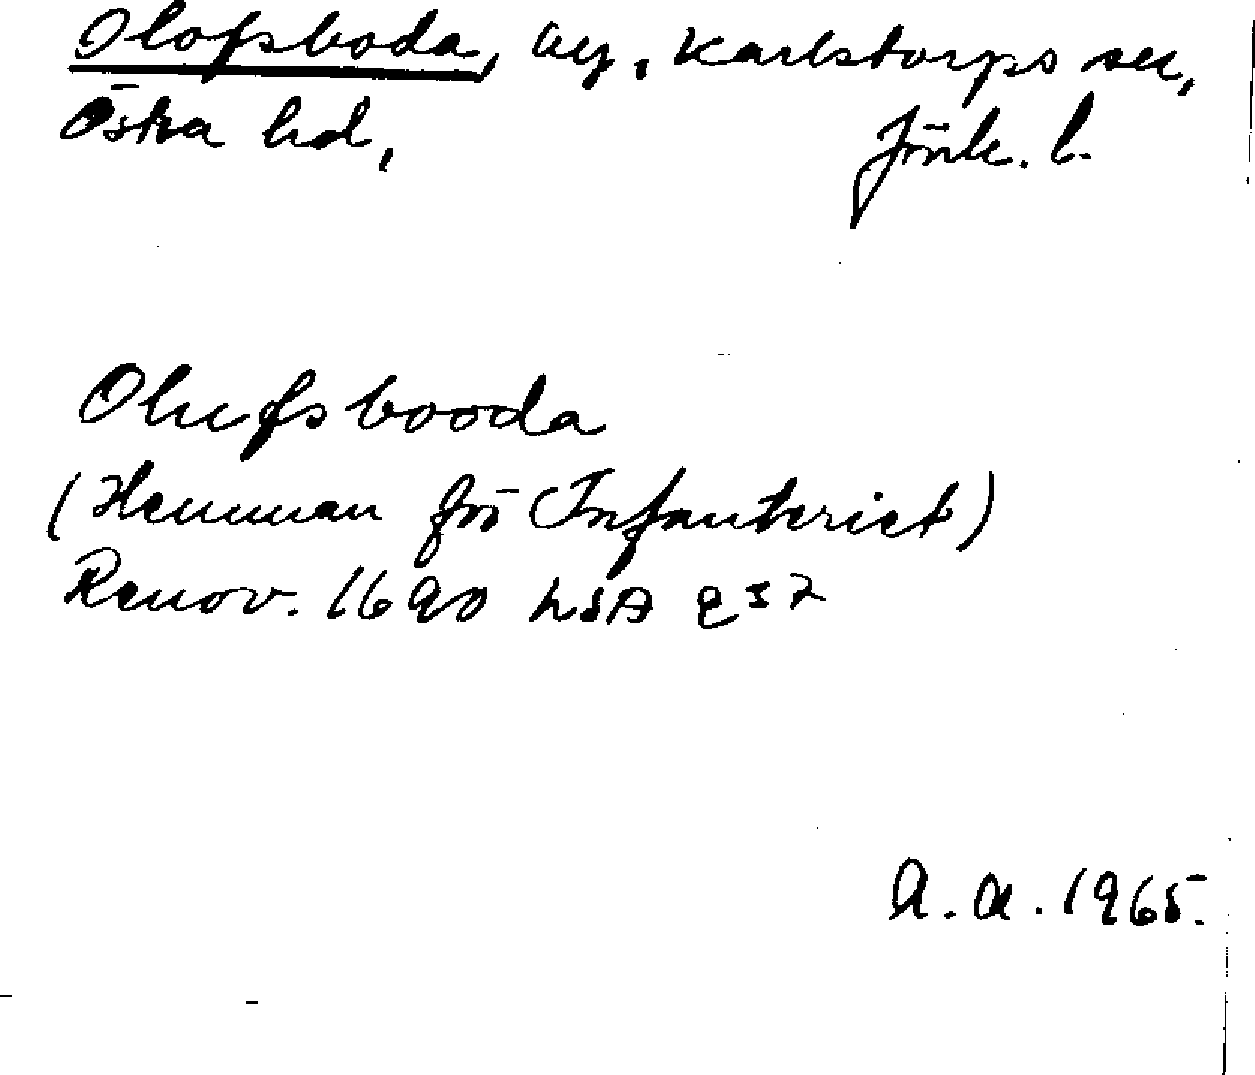 Olofsboda, by, Karlstorps sn,
Östra hd, Jönk. l.
Olufsbooda
(Hemman för Infanteriet)
Renov. 1690 LSA E 32
A. A. 1965.